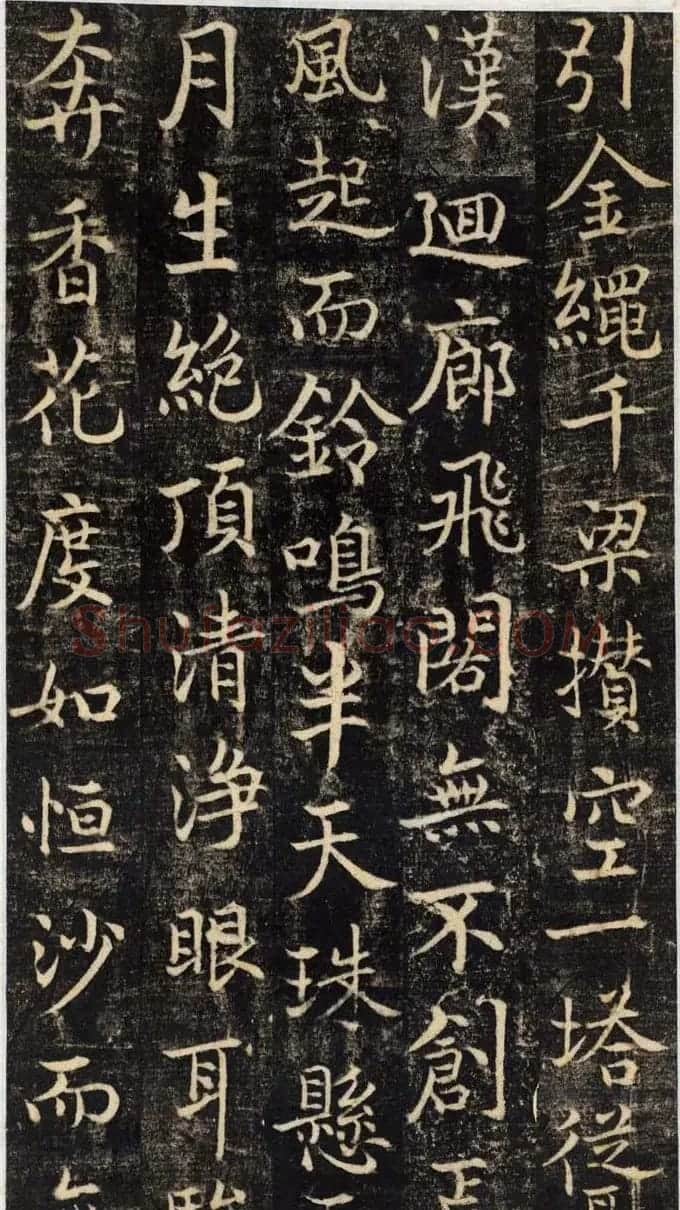 引金繩千梁攢空一塔從
漢迴廊飛閣無不創
風起而鈴鳴半天珠懸
月生絶頂清浄眼耳
奔香花度如恒沙而
Shufaziliao.COM